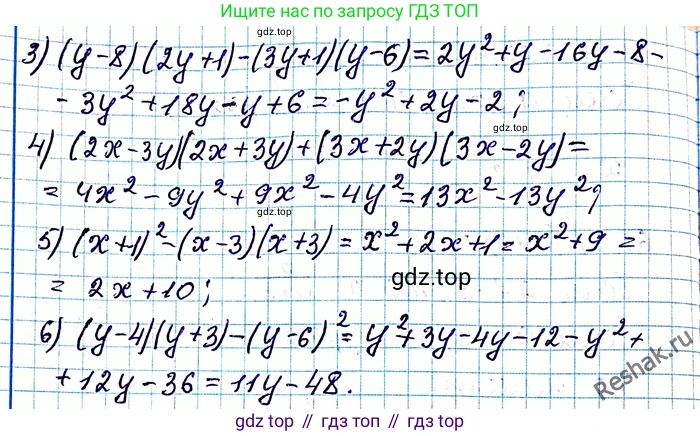 Ищите нас по запросу ГДЗ ТОП
gdz.top
3) (y-8)(2y+1)-(3y+1)(y-6)=2y²+y-16y-8-
-3y²+18y-y+6=-y²+2y-2;
4) (2x-3y)(2x+3y)+(3x+2y)(3x-2y)=
gdz.top
=4x²-9y²+9x²-4y²=13x²-13y²;
gdz.top
5) (x+1)²-(x-3)(x+3)=x²+2x+1=x²+9=
gdz.top
=2x+10;
6) (y-4)(y+3)-(y-6)²=y²+3y-4y-12-y²+
+12y-36=11y-48.
Reshak.ru
gdz top // гдз топ // gdz.top